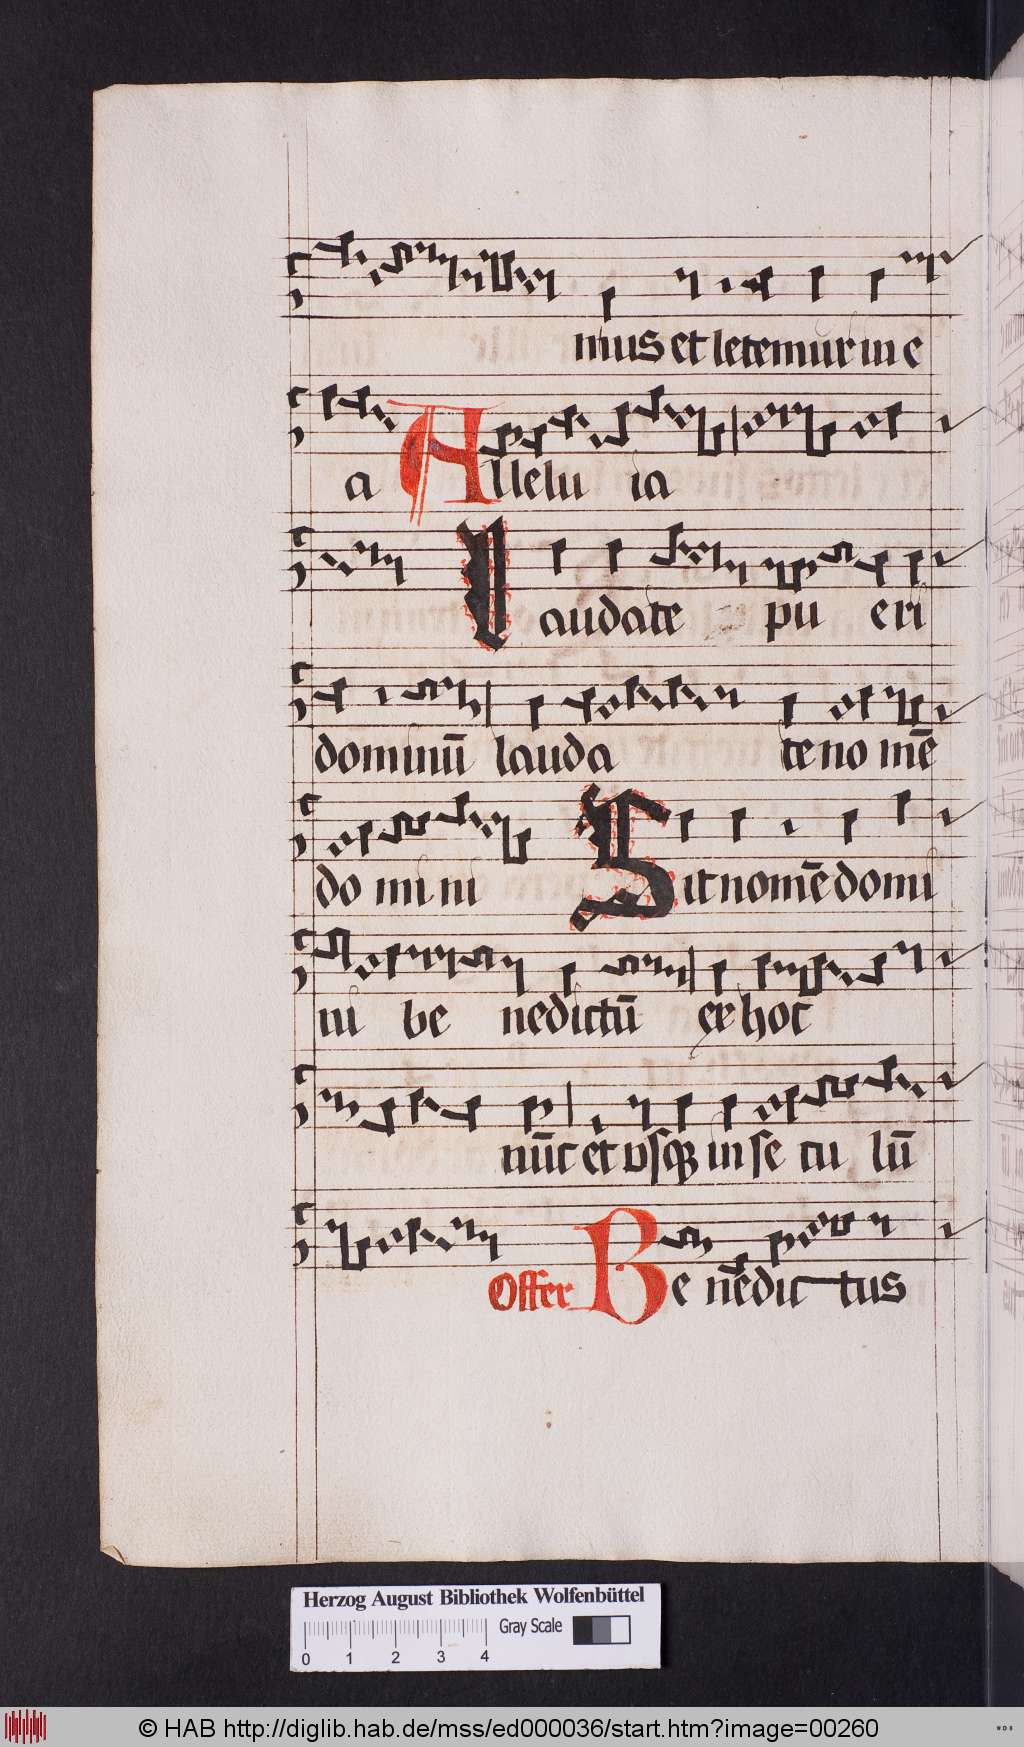 mus et letemur in e
a Allelu ia
Laudate pu eri
dominū lauda te no mē
do mi ni Sit nomē domi
ni be nedictū ex hoc
nūc et vsqꝫ in se cu lū
Offer Be nedic tus
Herzog August Bibliothek Wolfenbüttel
Gray Scale
0 1 2 3 4
© HAB http://diglib.hab.de/mss/ed000036/start.htm?image=00260